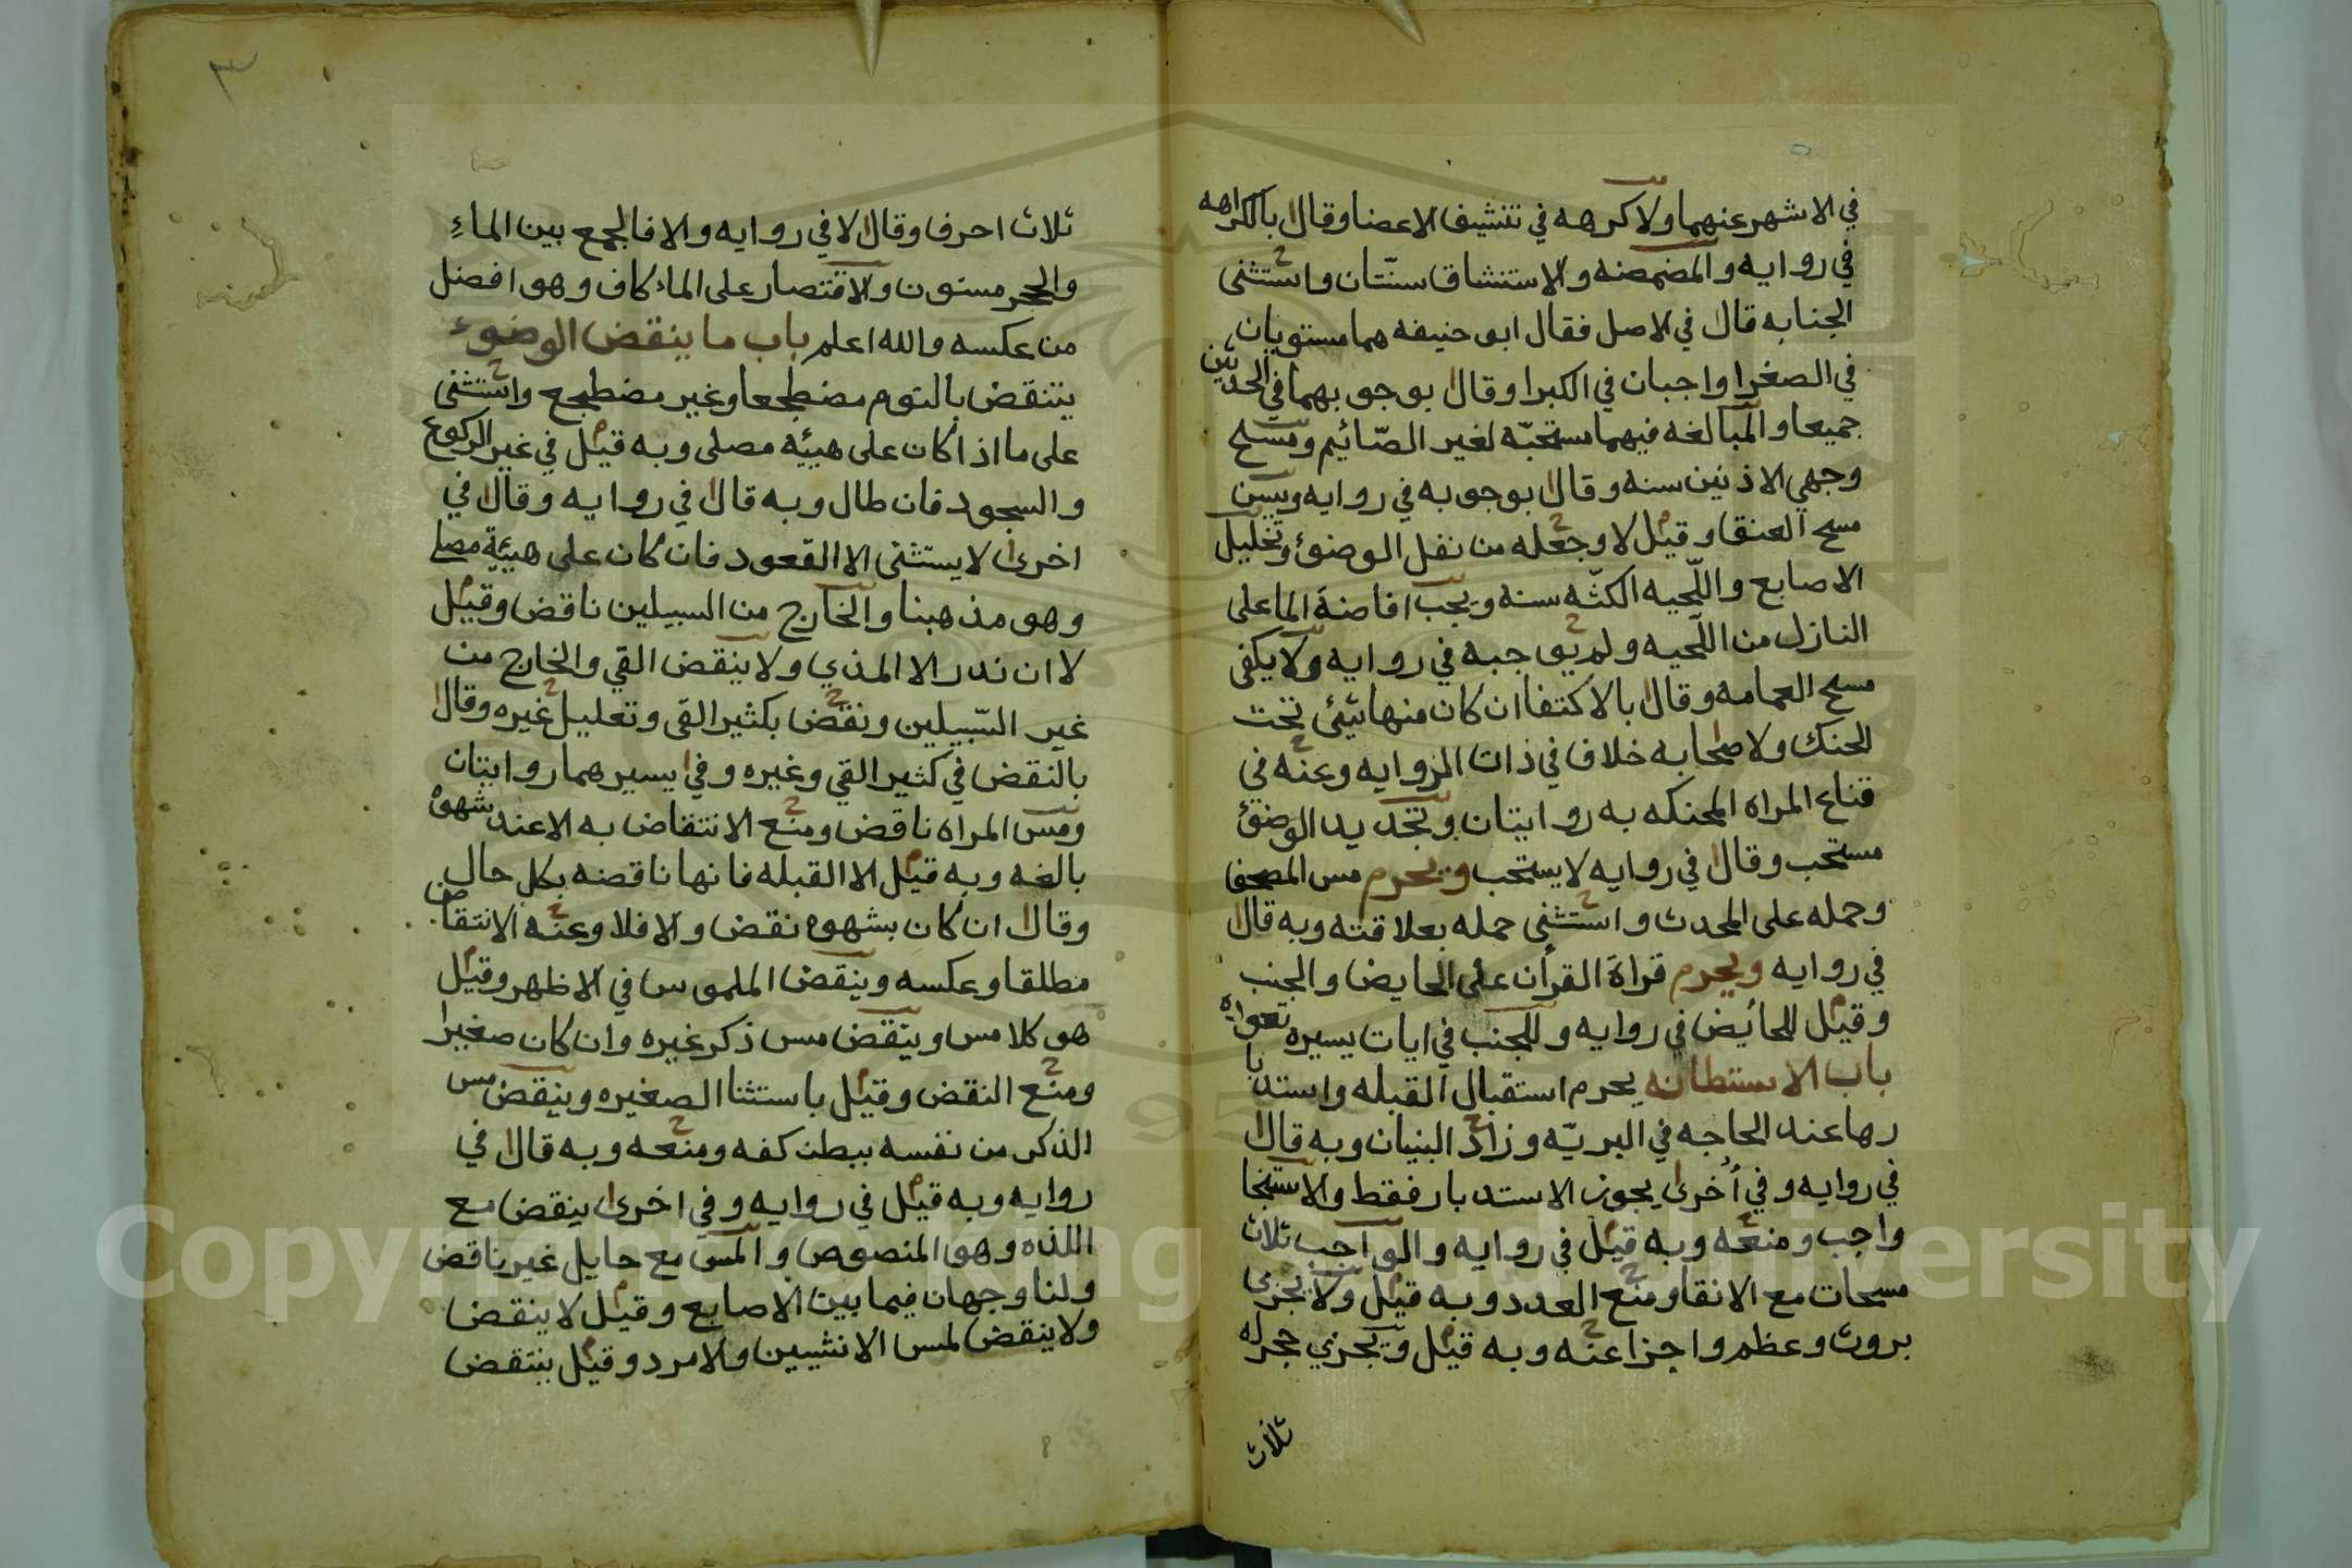 في الاشهر عنهما ولا كرهه في تنشيف الاعضا وقال بالكراهه
في روايه والمضمضه والاستنشاق سنّتان واستثنى
الجنابه قال في الاصل فقال ابو حنيفه هما مسنويان
في الصغرا واجبان في الكبرا وقال بوجوبهما في الحدثين
جميعا والمبالغه فيهما مستحبّه لغير الصّائيم ومسح
وجهي الاذنين سنه وقال بوجوبه في روايه ويسن
مسح العنقا وقيل لا وجعله من نفل الوضوئ وتخليل
الاصابع واللّحيه الكثّه سنه ويجب افاضة الما على
النازل من اللّحيه ولم يوجبه في روايه ولا يكفى
مسح العمامه وقال بالاكتفا ان كان منها شيئ تحت
الحنك ولاصحابه خلاف في ذات الزوايه وعنه في
قناع المراه المحنكه به روايتان وتجديد الوضوئ
مستحب وقال في روايه لا يستحب ويحرم مس المصحف
وحمله على المحدث واستثنى حمله بعلاقته وبه قال
في روايه ويحرم قراة القرأن على الحايض والجنب
وقيل للحائيض في روايه وللجنب في ايات يسيره تعواه
باب الاستطابه يحرم استقبال القبله واستدبا
رها عند الحاجه في البريّه وزاد البنيان وبه قال
في روايه وفي أخرى يجوز الاستدبار فقط والاستنجا
واجب ومنعه وبه قيل في روايه والواجب ثلاث
مسحات مع الانقا ومنع العدد وبه قيل ولا يجزى
بروث وعظم واجزا عنه وبه قيل ويجزي حجر له
ثلاث
٣
ثلاث احرف وقال لا في روايه والافالجمع بين الماءِ
والحجر مسنون والاقتصار على الماء كاف وهو افضل
من عكسه والله اعلم باب ما ينقض الوضوء
ينتقض بالنوم مضطجعا وغير مضطجع واستثنى
على ما اذا كان على هيئيه مصلى وبه قيل في غير الركوع
والسجود فان طال وبه قال في روايه وقال في
اخرى لا يستثنى الا القعود فان كان على هييئة مصل
وهو مذهبنا والخارج من السبيلين ناقض وقيل
لا ان ندر الا المذي ولا ينقض القي والخارج من
غير السّبيلين ونقض بكثير القى وتعليل غيره وقال
بالنقض في كثير القي وغيره وفي يسيرهما روايتان
ومس المراه ناقض ومنع الانتقاض به الا عند شهوة
بالغه وبه قيل الا القبله فانها ناقضه بكل حال
وقال ان كان بشهوه نقض والا فلا وعنه الانتقاض
مطلقا وعكسه وينقض الملموس في الاظهر وقيل
هو كلامس وينقض مس ذكر غيره وان كان صغيرا
ومنع النقض وقيل باستثنا الصغيره وينقض مس
الذكر من نفسه ببطن كفه ومنعه وبه قال في
روايه وبه قيل في روايه وفي اخرى ينقض مع
اللذه وهو المنصوص والمس مع حايل غير ناقض
ولنا وجهان فيما بين الاصابع وقيل لا ينقض
ولا ينقض لمس الانثيين والامرد وقيل ينتقض
Copyright © King Saud University